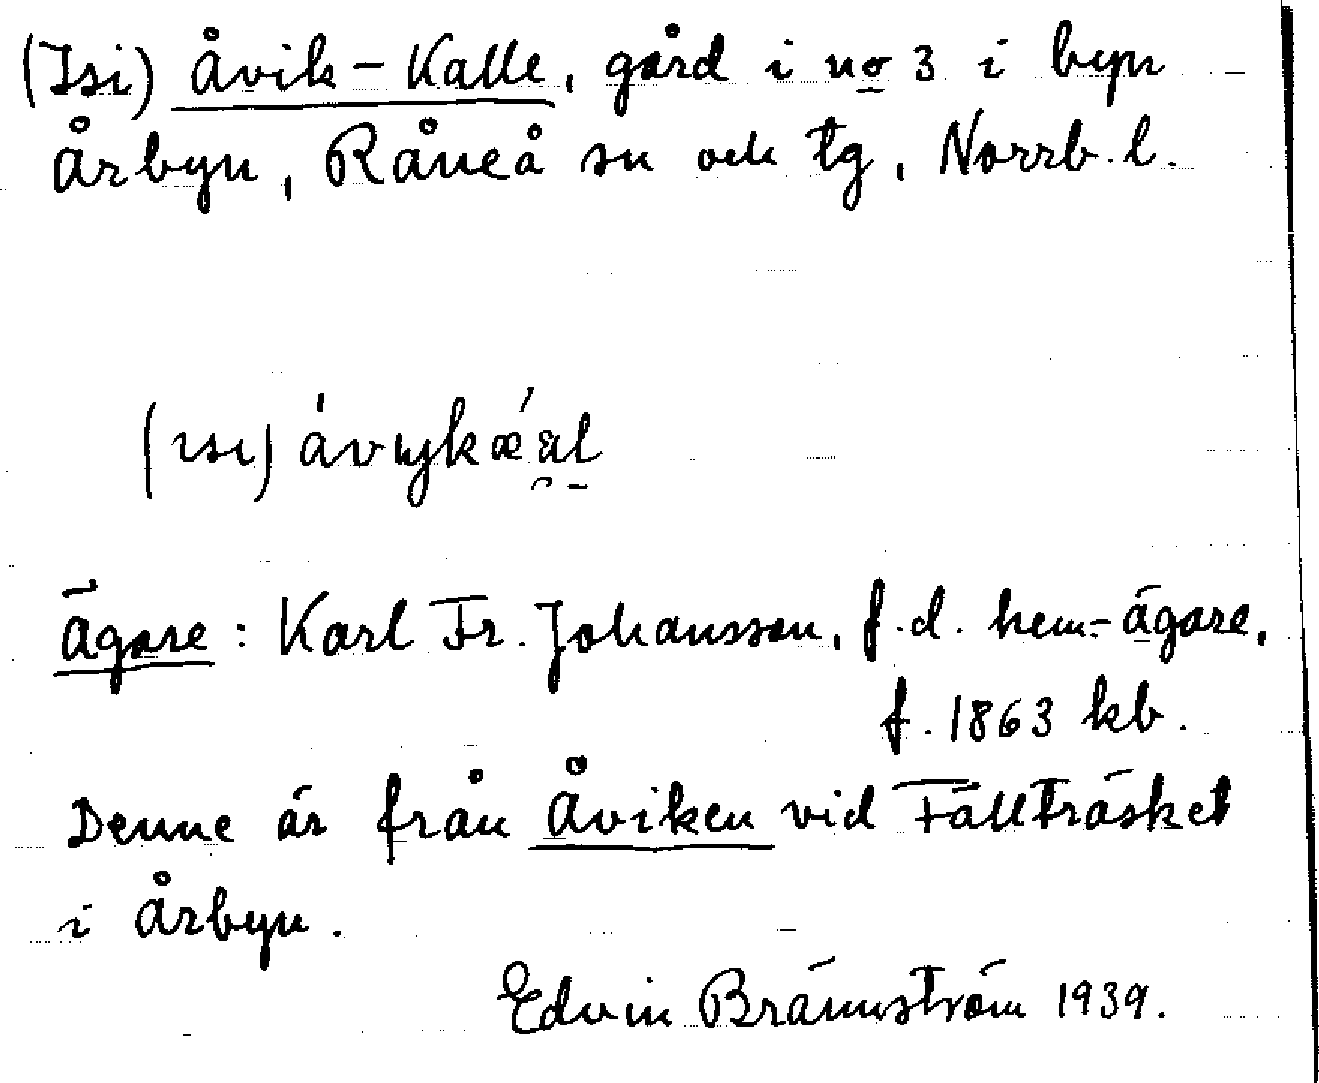 (Isi) Åvik-Kalle, gård i no 3 i byn
Årbyn, Råneå sn och tg, Norrb. l.
(ısı)
Ägare: Karl Fr. Johansson, f.d. hem.-ägare,
f. 1863 kb.
Denne är från Åviken vid Fällträsket
i Årbyn.
Edvin Brännström 1939.